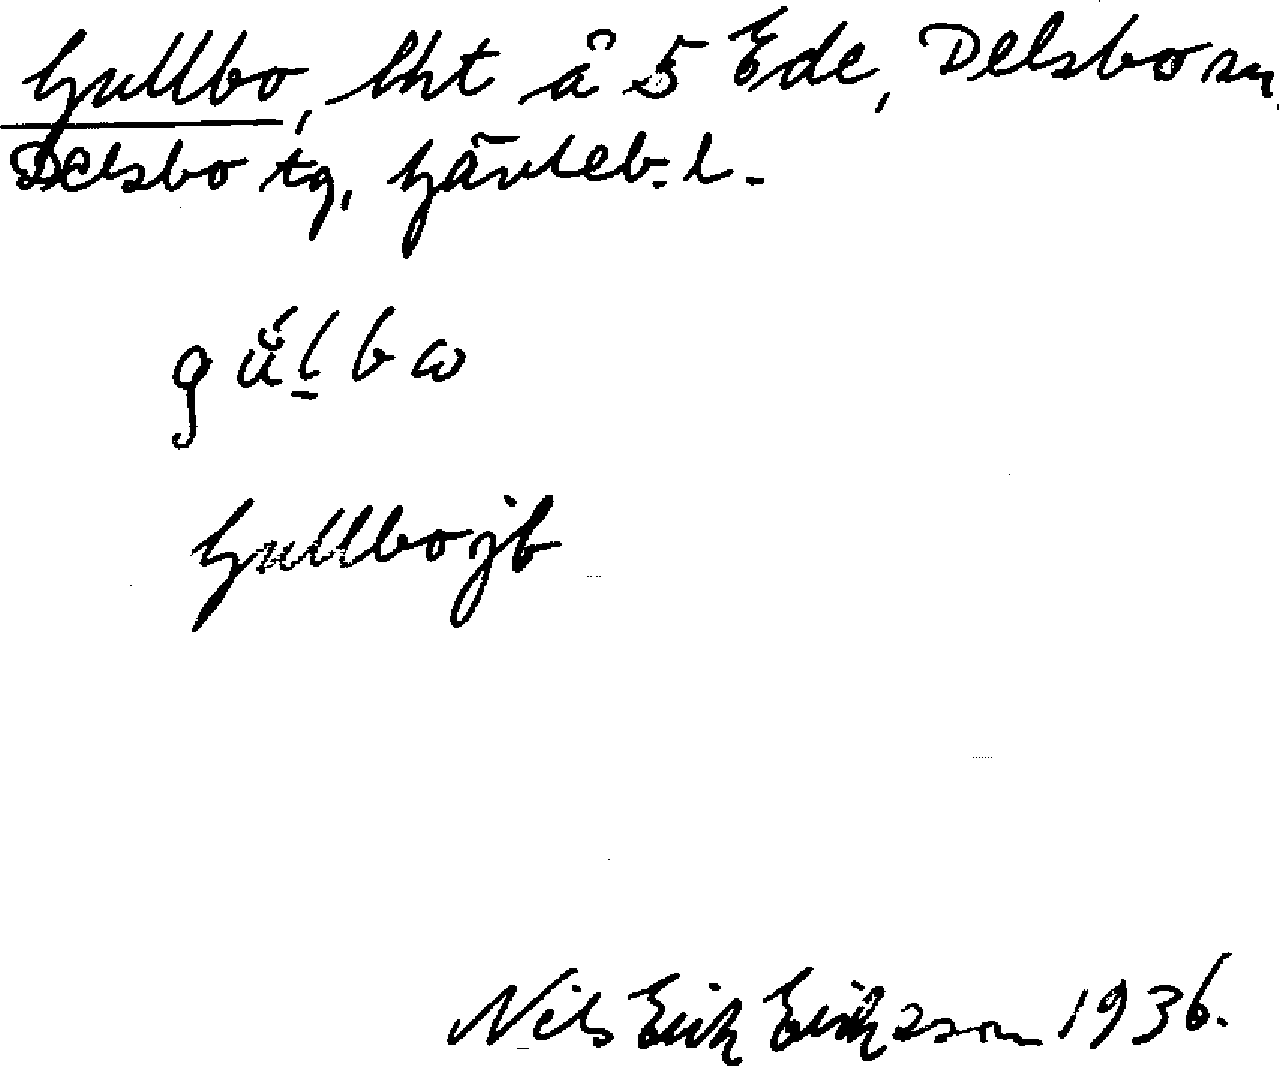 Gullbo, lht å 5 Ede, Delsbo sn
Delsbo tg, Gävleb. l.
Gullbo jb
Nils Erik Eriksson 1936.